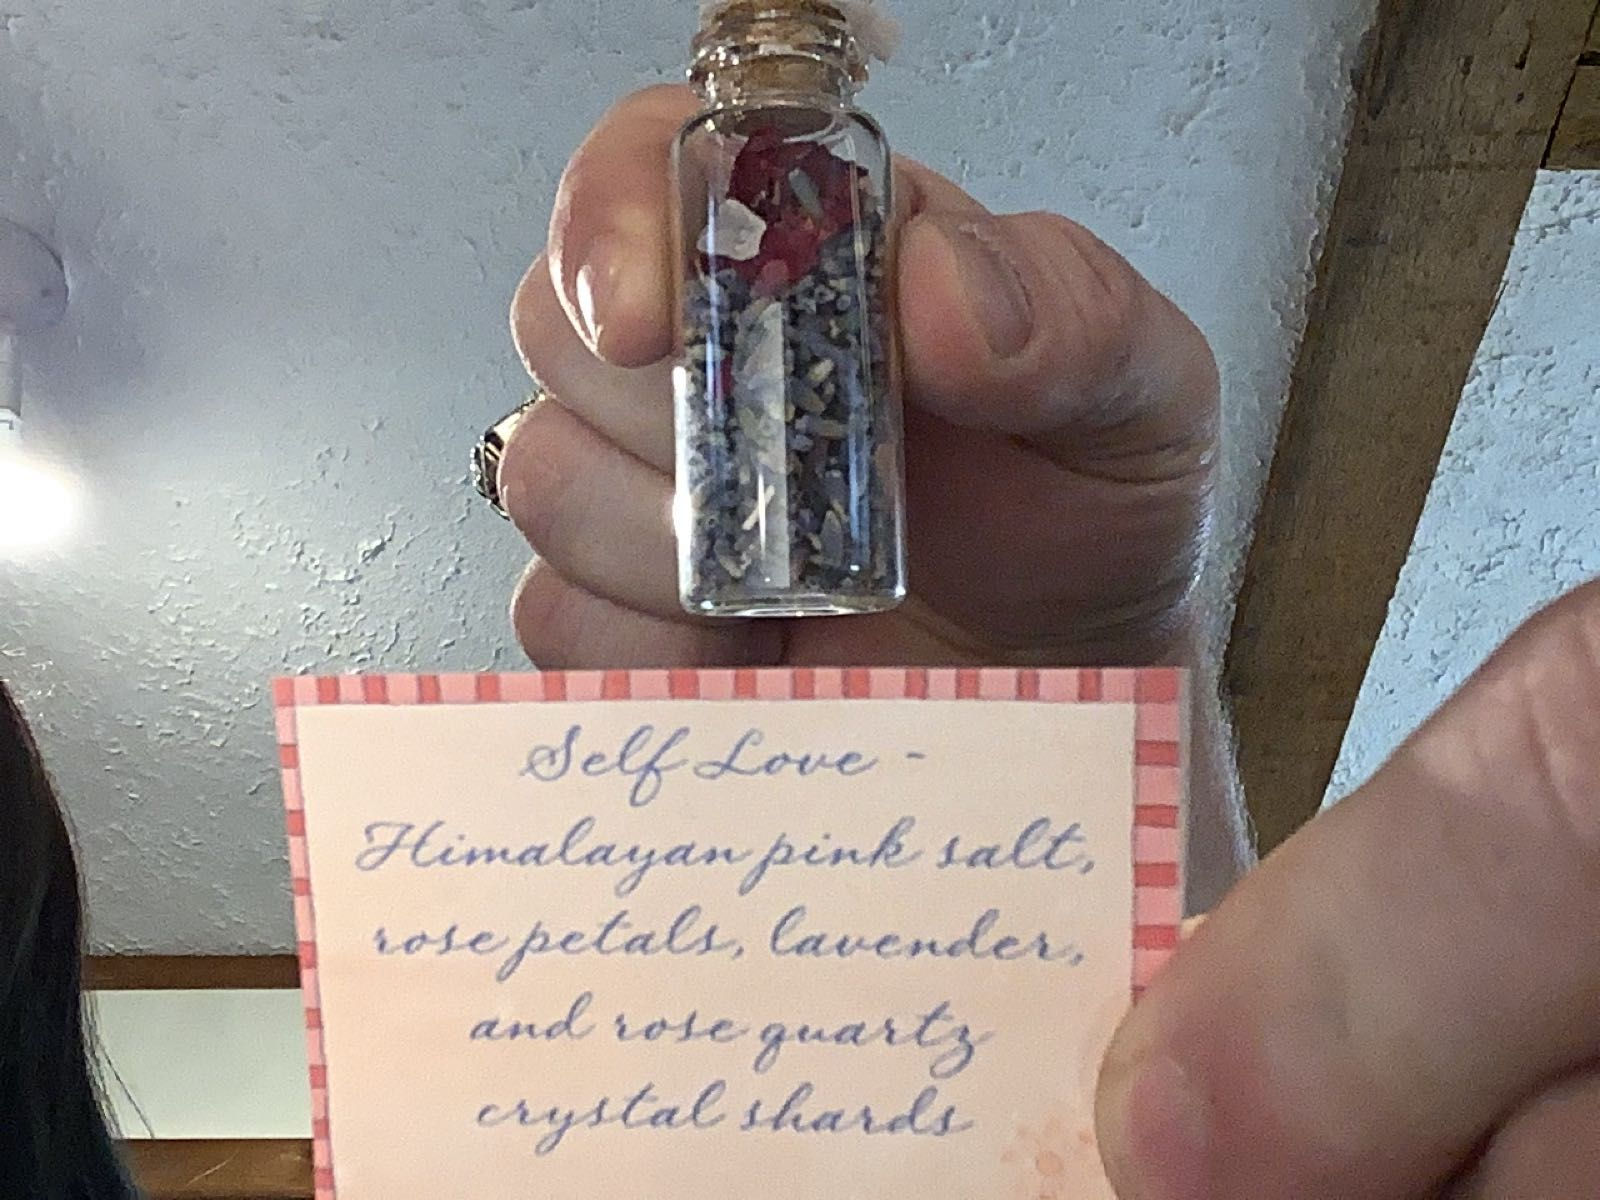 Self Love -
Himalayan pink salt,
rose petals, lavender,
and rose quartz
crystal shards